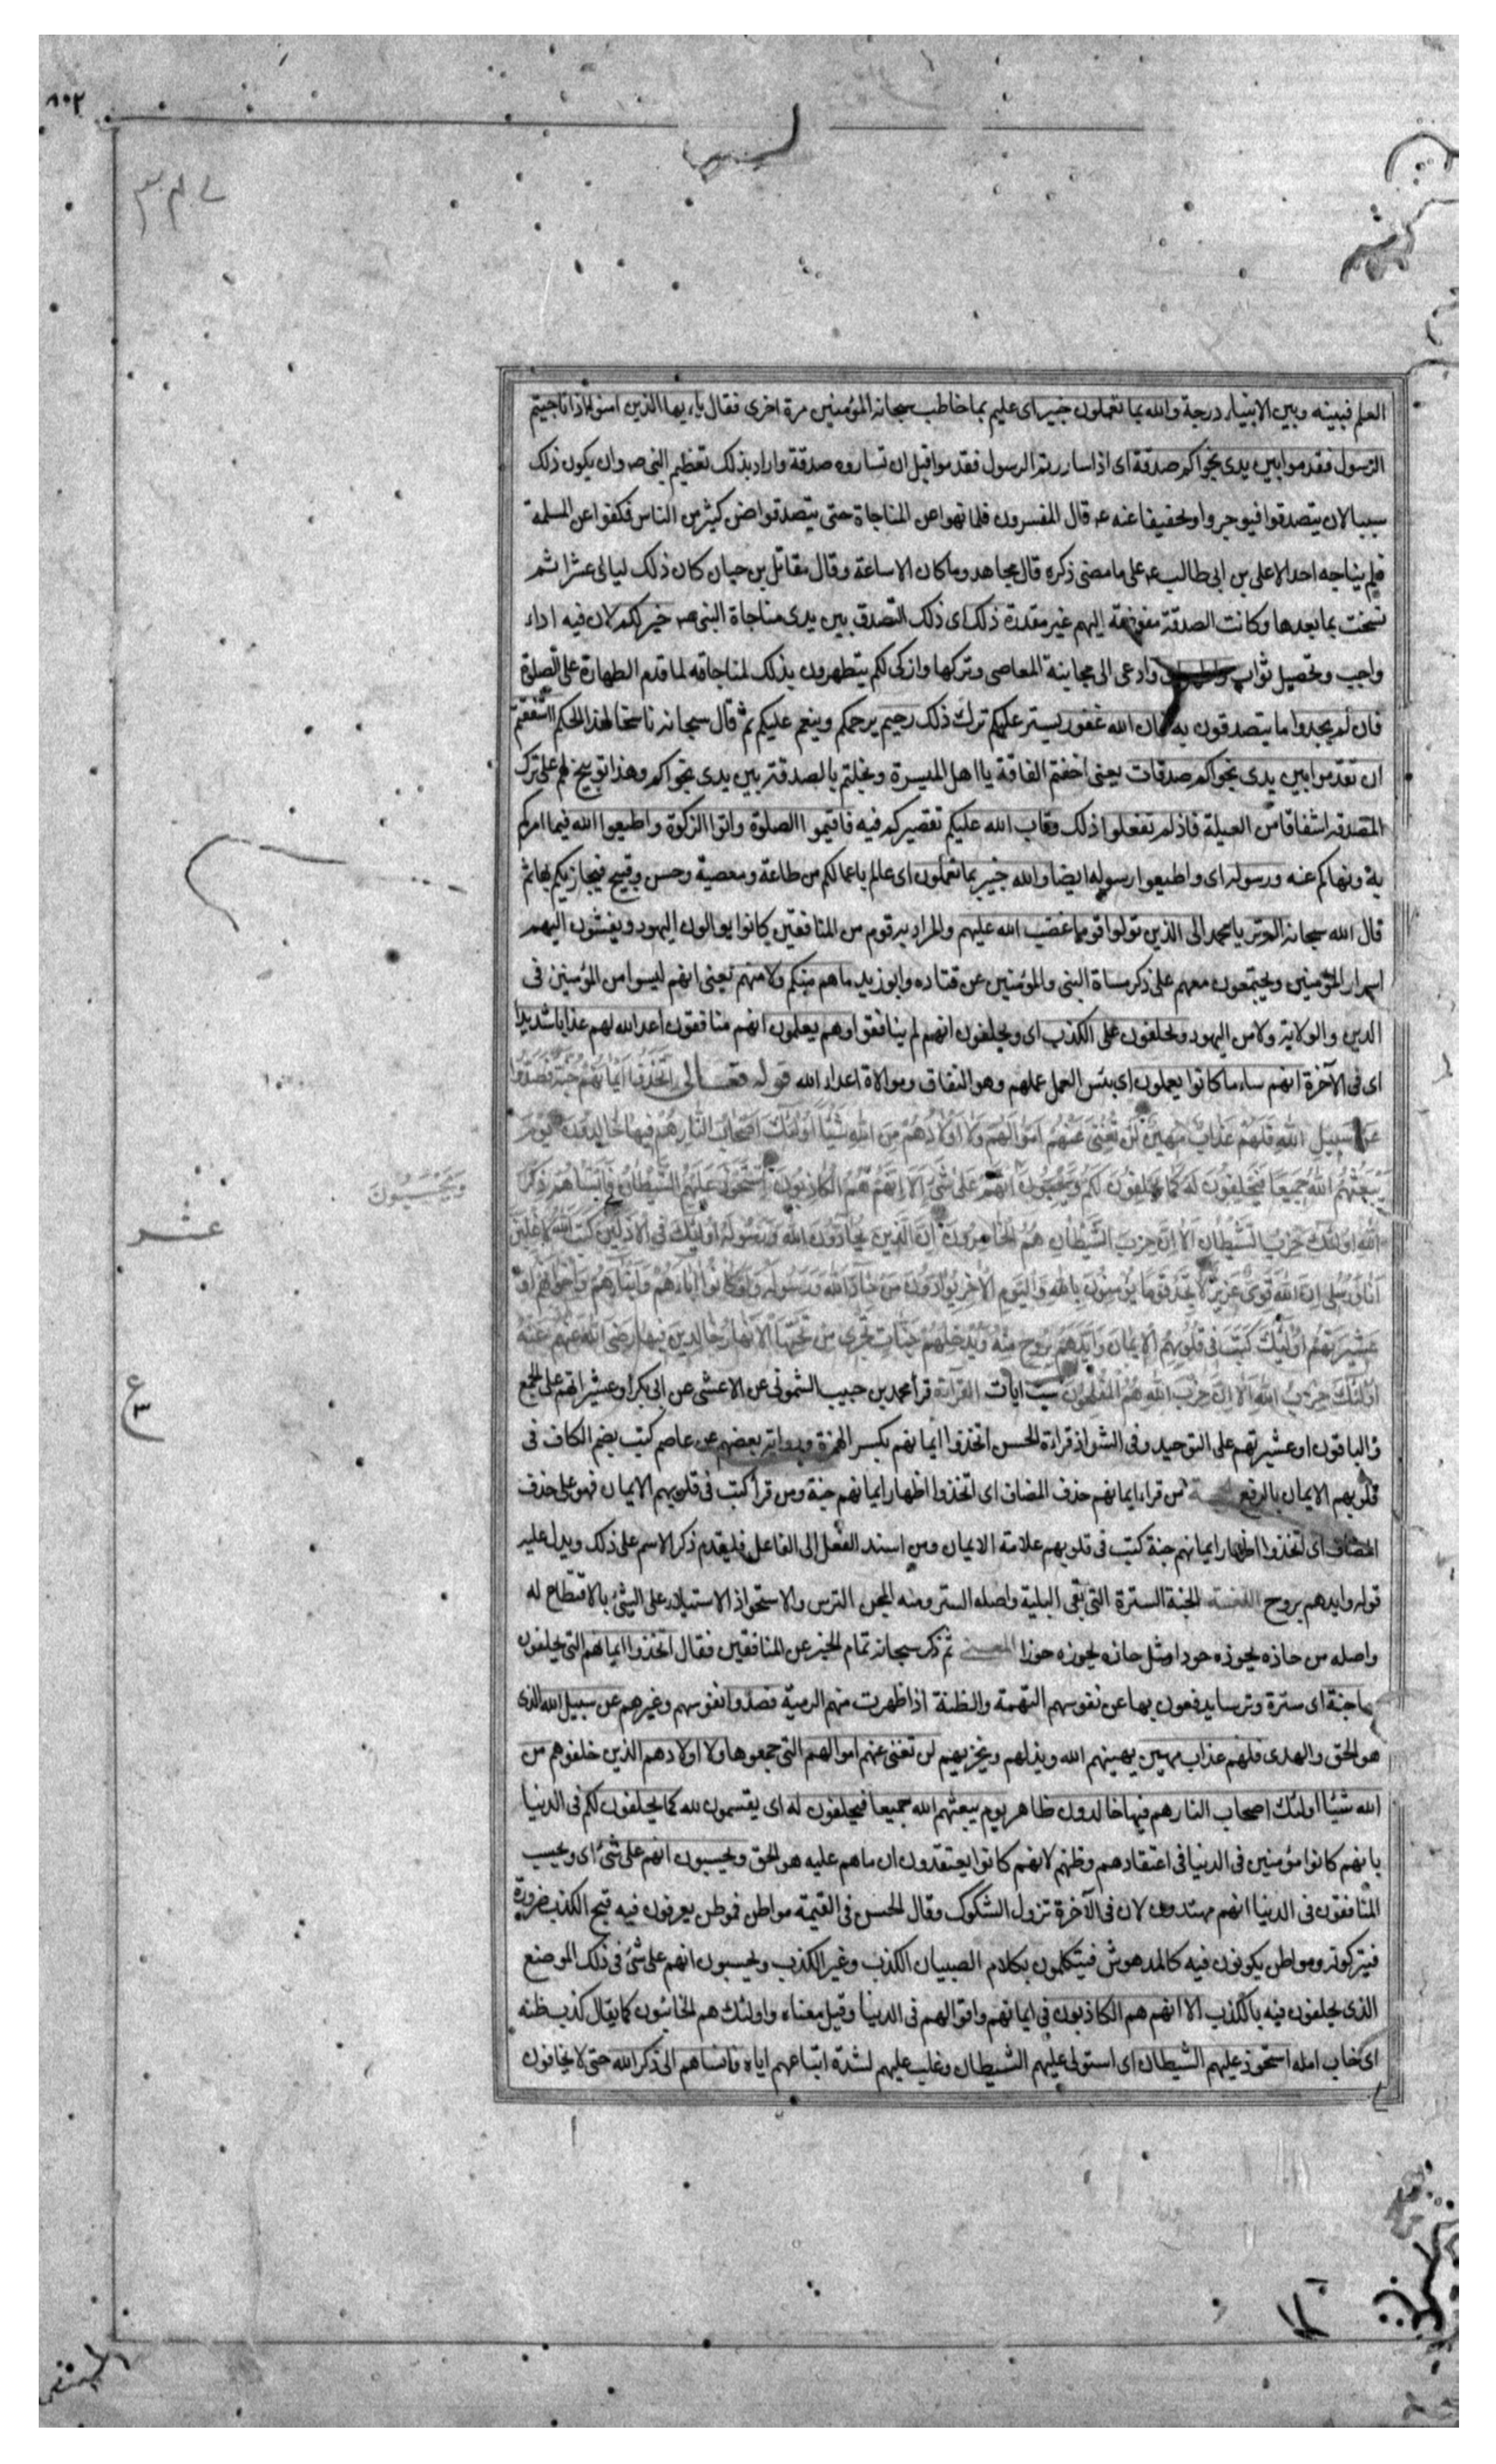 ٨٠٢
العلم فبينه وبين الانبياء درجة والله بما تعملون خبير اى عليم بما خاطب سبحانه المؤمنين مرة اخرى فقال يا ايها الذين امنوا اذا ناجيتم
الرسول فقدموا بين يدى نجواكم صدقة اى اذا ساررتم الرسول فقدموا قبل ان تساروه صدقة واراد بذلك تعظيم النبى ص وان يكون ذلك
سببا لان يتصدقوا فيوجروا وتخفيفا عنه ع قال المفسرون فلما نهوا عن المناجاة حتى يتصدقوا ضن كثير من الناس فكفوا عن المسلمة
فلم يناجه احد الا على بن ابى طالب ع على ما مضى ذكره قال مجاهد وما كان الا ساعة وقال مقاتل بن حيان كان ذلك ليالى عشرا ثم
نسخت بما بعدها وكانت الصدقة مفوضة اليهم غير مقدرة ذلك اى ذلك التصدق بين يدى مناجاة النبى ص خير لكم لان فيه اداء
واجب وتحصيل ثواب وادعى الى مجانبة المعاصى وتركها وازكى لكم يتطهرون بذلك لمناجاته لما قدم الطهارة على الصلوة
فان لم يجدوا ما يتصدقون به فان الله غفور يستر عليكم ترك ذلك رحيم يرحمكم وينعم عليكم ثم قال سبحانه ناسخا لهذا الحكم ااشفقتم
ان تقدموا بين يدى نجواكم صدقات يعنى اخفتم الفاقة يا اهل الميسرة وبخلتم بالصدقة بين يدى نجواكم وهذا توبيخ لهم على ترك
الصدقة اشفاقا من العيلة فاذ لم تفعلوا ذلك وتاب الله عليكم تقصيركم فيه فاقيموا الصلوة واتوا الزكوة واطيعوا الله فيما امركم
به ونهاكم عنه ورسوله اى واطيعوا رسوله ايضا والله خبير بما تعملون اى عالم باعمالكم من طاعة ومعصية وحسن وقبيح فيجازيكم بها ثم
قال الله سبحانه الم تر يا محمد الى الذين تولوا قوما غضب الله عليهم والمراد به قوم من المنافقين كانوا يوالون اليهود ويفشون اليهم
اسرار المؤمنين ويجتمعون معهم على ذكر مساة النبى والمؤمنين عن قتاده وابو زيد ما هم منكم ولا منهم يعنى انهم ليسوا من المؤمنين فى
الدين والولاية ولا من اليهود ويحلفون على الكذب اى ويحلفون انهم لم ينافقوا وهم يعلمون انهم منافقون اعد الله لهم عذابا شديدا
اى فى الآخرة انهم ساء ما كانوا يعملون اى بئس العمل عملهم وهو النفاق وموالاة اعداء الله قوله تعالى اتخذوا ايمانهم جنة فصدوا
عن سبيل الله فلهم عذاب مهين لن تغنى عنهم اموالهم ولا اولادهم من الله شيئا اولئك اصحاب النار هم فيها خالدون يوم
يبعثهم الله جميعا فيحلفون له كما يحلفون لكم ويحسبون انهم على شئ الا انهم هم الكاذبون استحوذ عليهم الشيطان فانساهم ذكر
ويحسبون
الله اولئك حزب الشيطان الا ان حزب الشيطان هم الخاسرون ان الذين يحادون الله ورسوله اولئك فى الاذلين كتب الله لاغلبن
عشر
انا ورسلى ان الله قوى عزيز لا تجد قوما يؤمنون بالله واليوم الاخر يوادون من حاد الله ورسوله ولو كانوا اباءهم او ابناءهم او اخوانهم او
عشيرتهم اولئك كتب فى قلوبهم الايمان وايدهم بروح منه ويدخلهم جنات تجرى من تحتها الانهار خالدين فيها رضى الله عنهم ورضوا عنه
اولئك حزب الله الا ان حزب الله هم المفلحون ست ايات القراءة قرأ محمد بن حبيب الشمونى عن الاعشى عن ابى بكر او عشيراتهم على الجمع
ع
والباقون او عشيرتهم على التوحيد وفى الشواذ قراءة الحسن اتخذوا ايمانهم بكسر الهمزة ورواية بعضهم عن عاصم كتب بضم الكاف فى
قلوبهم الايمان بالرفع من قراء ايمانهم حذف المضاف اى اتخذوا اظهار ايمانهم جنة ومن قرأ كتب فى قلوبهم الايمان فهو على حذف
المضاف اى اتخذوا اظهار ايمانهم جنة كتب فى قلوبهم علامة الايمان ومن اسند الفعل الى الفاعل فليقدم ذكر الاسم على ذلك ويدل عليه
قوله وايدهم بروح اللغة الجنة السترة التى تقى البلية واصله الستر ومنه المجن الترس والاستحواذ الاستيلاء على الشئ بالاقتطاع له
واصله من حاذه يحوذه حوذا مثل حازه يحوزه حوزا المعنى ثم ذكر سبحانه تمام الخبر عن المنافقين فقال اتخذوا ايمانهم التى يحلفون
بها جنة اى سترة وترسا يدفعون بها عن نفوسهم التهمة والظنة اذا ظهرت منهم الريبة فصدوا نفوسهم وغيرهم عن سبيل الله الذى
هو الحق والهدى فلهم عذاب مهين يهينهم الله ويذلهم ويخزيهم لن تغنى عنهم اموالهم التى جمعوها ولا اولادهم الذين خلفوهم من
الله شيئا اولئك اصحاب النار هم فيها خالدون ظاهر يوم يبعثهم الله جميعا فيحلفون له اى يقسمون لله كما يحلفون لكم فى الدنيا
بانهم كانوا مؤمنين فى الدنيا فى اعتقادهم وظنهم لانهم كانوا يعتقدون ان ما هم عليه هو الحق ويحسبون انهم على شئ اى ويحسب
المنافقون فى الدنيا انهم مهتدون لان فى الآخرة تزول الشكوك وقال الحسن فى القيمة مواطن فموطن يعرفون فيه قبح الكذب ضرورة
فيتركونه وموطن يكونون فيه كالمدهوش فيتكلمون بكلام الصبيان الكذب وغير الكذب ويحسبون انهم على شئ فى ذلك الموضع
الذى يحلفون فيه بالكذب الا انهم هم الكاذبون فى ايمانهم واقوالهم فى الدنيا وقيل معناه واولئك هم الخائبون كما يقال كذب ظنه
اى خاب امله استحوذ عليهم الشيطان اى استولى عليهم الشيطان وغلب عليهم لشدة اتباعهم اياه فانساهم الى ذكر الله حتى لا يخافون